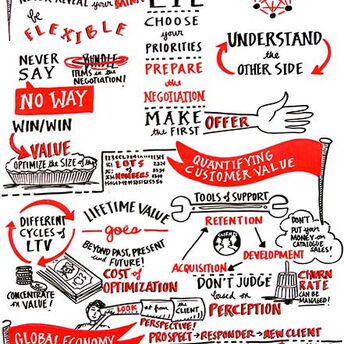 NEVER REVEAL your
be FLEXIBLE
CHOOSE
your
PRIORITIES
UNDERSTAND
the
OTHER SIDE
NEVER
SAY
BUNDLE
ITEMS in the
NEGOTIATION!
NO WAY
PREPARE
the
NEGOTIATION
WIN/WIN
VALUE
OPTIMIZE the SIZE of the
MAKE
the FIRST
OFFER
LOTS
of
NUMBERS
QUANTIFYING
CUSTOMER VALUE
TOOLS of SUPPORT
DIFFERENT
CYCLES of
LTV
LIFETIME VALUE
goes
BEYOND PAST, PRESENT
and FUTURE!
RETENTION
CLIENTS
DEVELOPMENT
ACQUISITION
DON'T
PUT your
MONEY on
CATALOGUE
SALES!
COST of
OPTIMIZATION
CONCENTRATE
on VALUE!
DON'T JUDGE
based on
PERCEPTION
CHURN
RATE
CAN be
MANAGED!
LOOK at from the CLIENT
PERSPECTIVE!
PROSPECT → RESPONDER → NEW CLIENT
GLOBAL ECONOMY